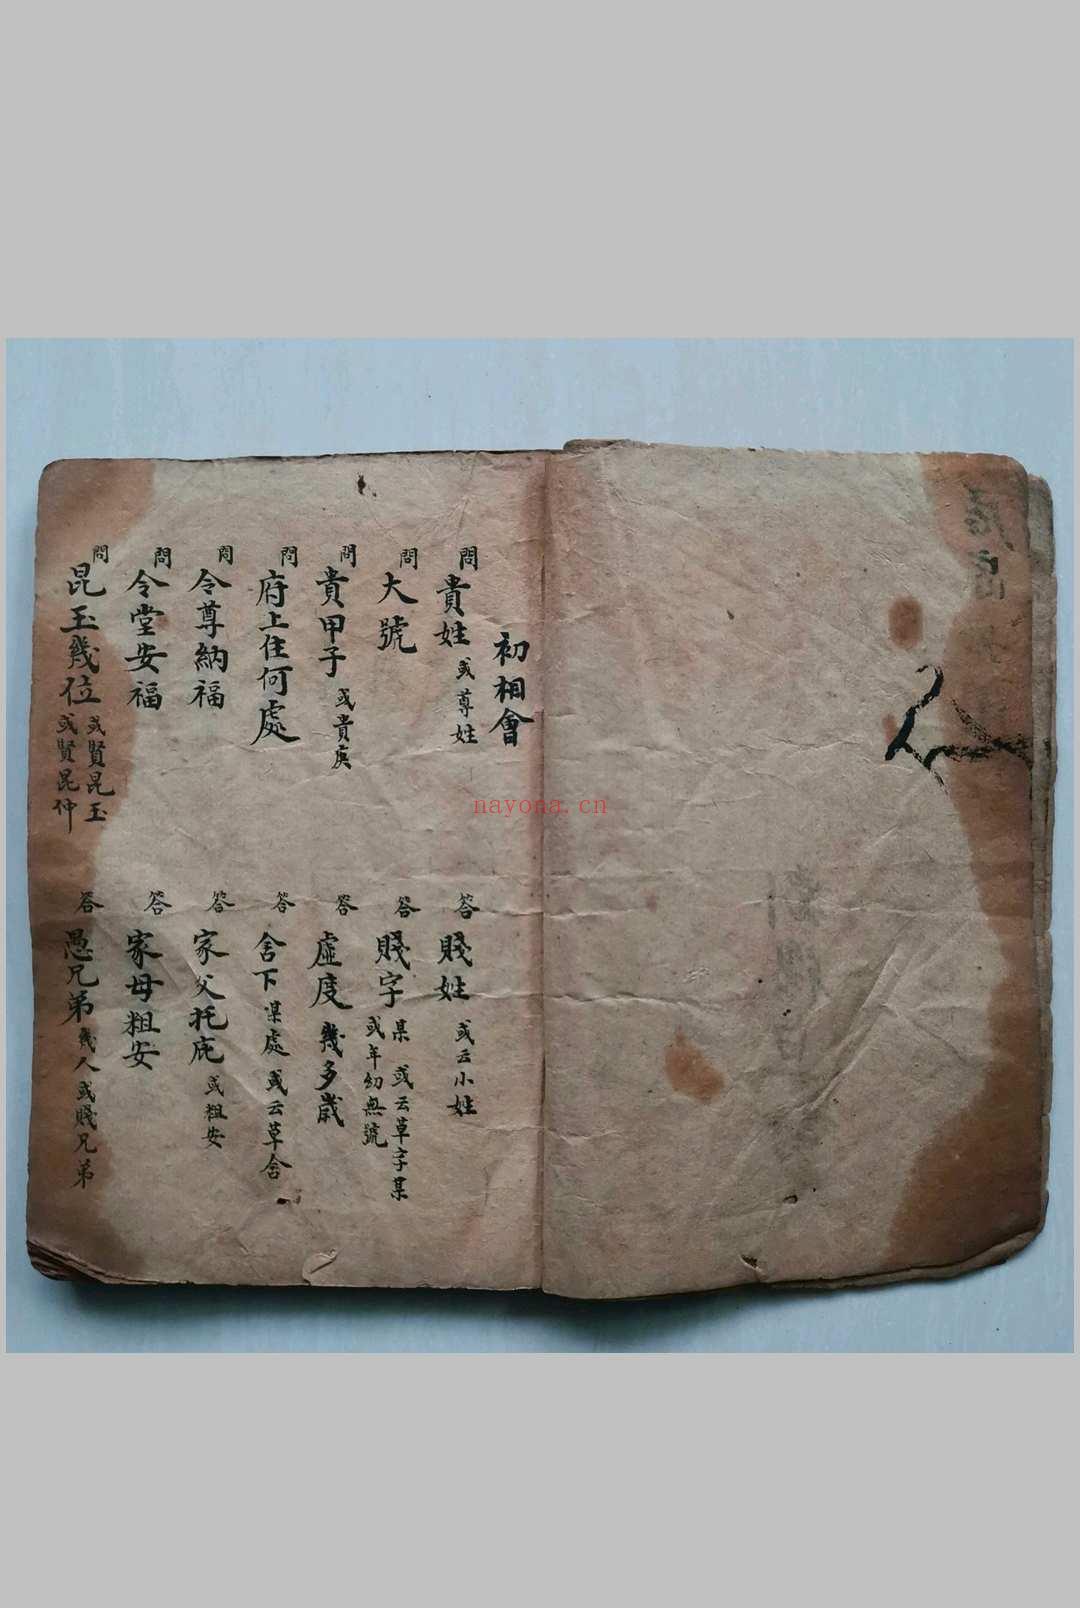 初相會
問 貴姓 或尊姓
答 賤姓 或云小姓
問 大號
答 賤字 某 或云草字某 或年幼無號
問 貴甲子 或貴庚
答 虛度 幾多歲
問 府上住何處
答 舍下 某處 或云草舍
問 令尊納福
答 家父托庇 或粗安
問 令堂安福
答 家母粗安
問 昆玉幾位 或賢昆玉 或賢昆仲
答 愚兄弟 幾人 或賤兄弟
nayona.cn